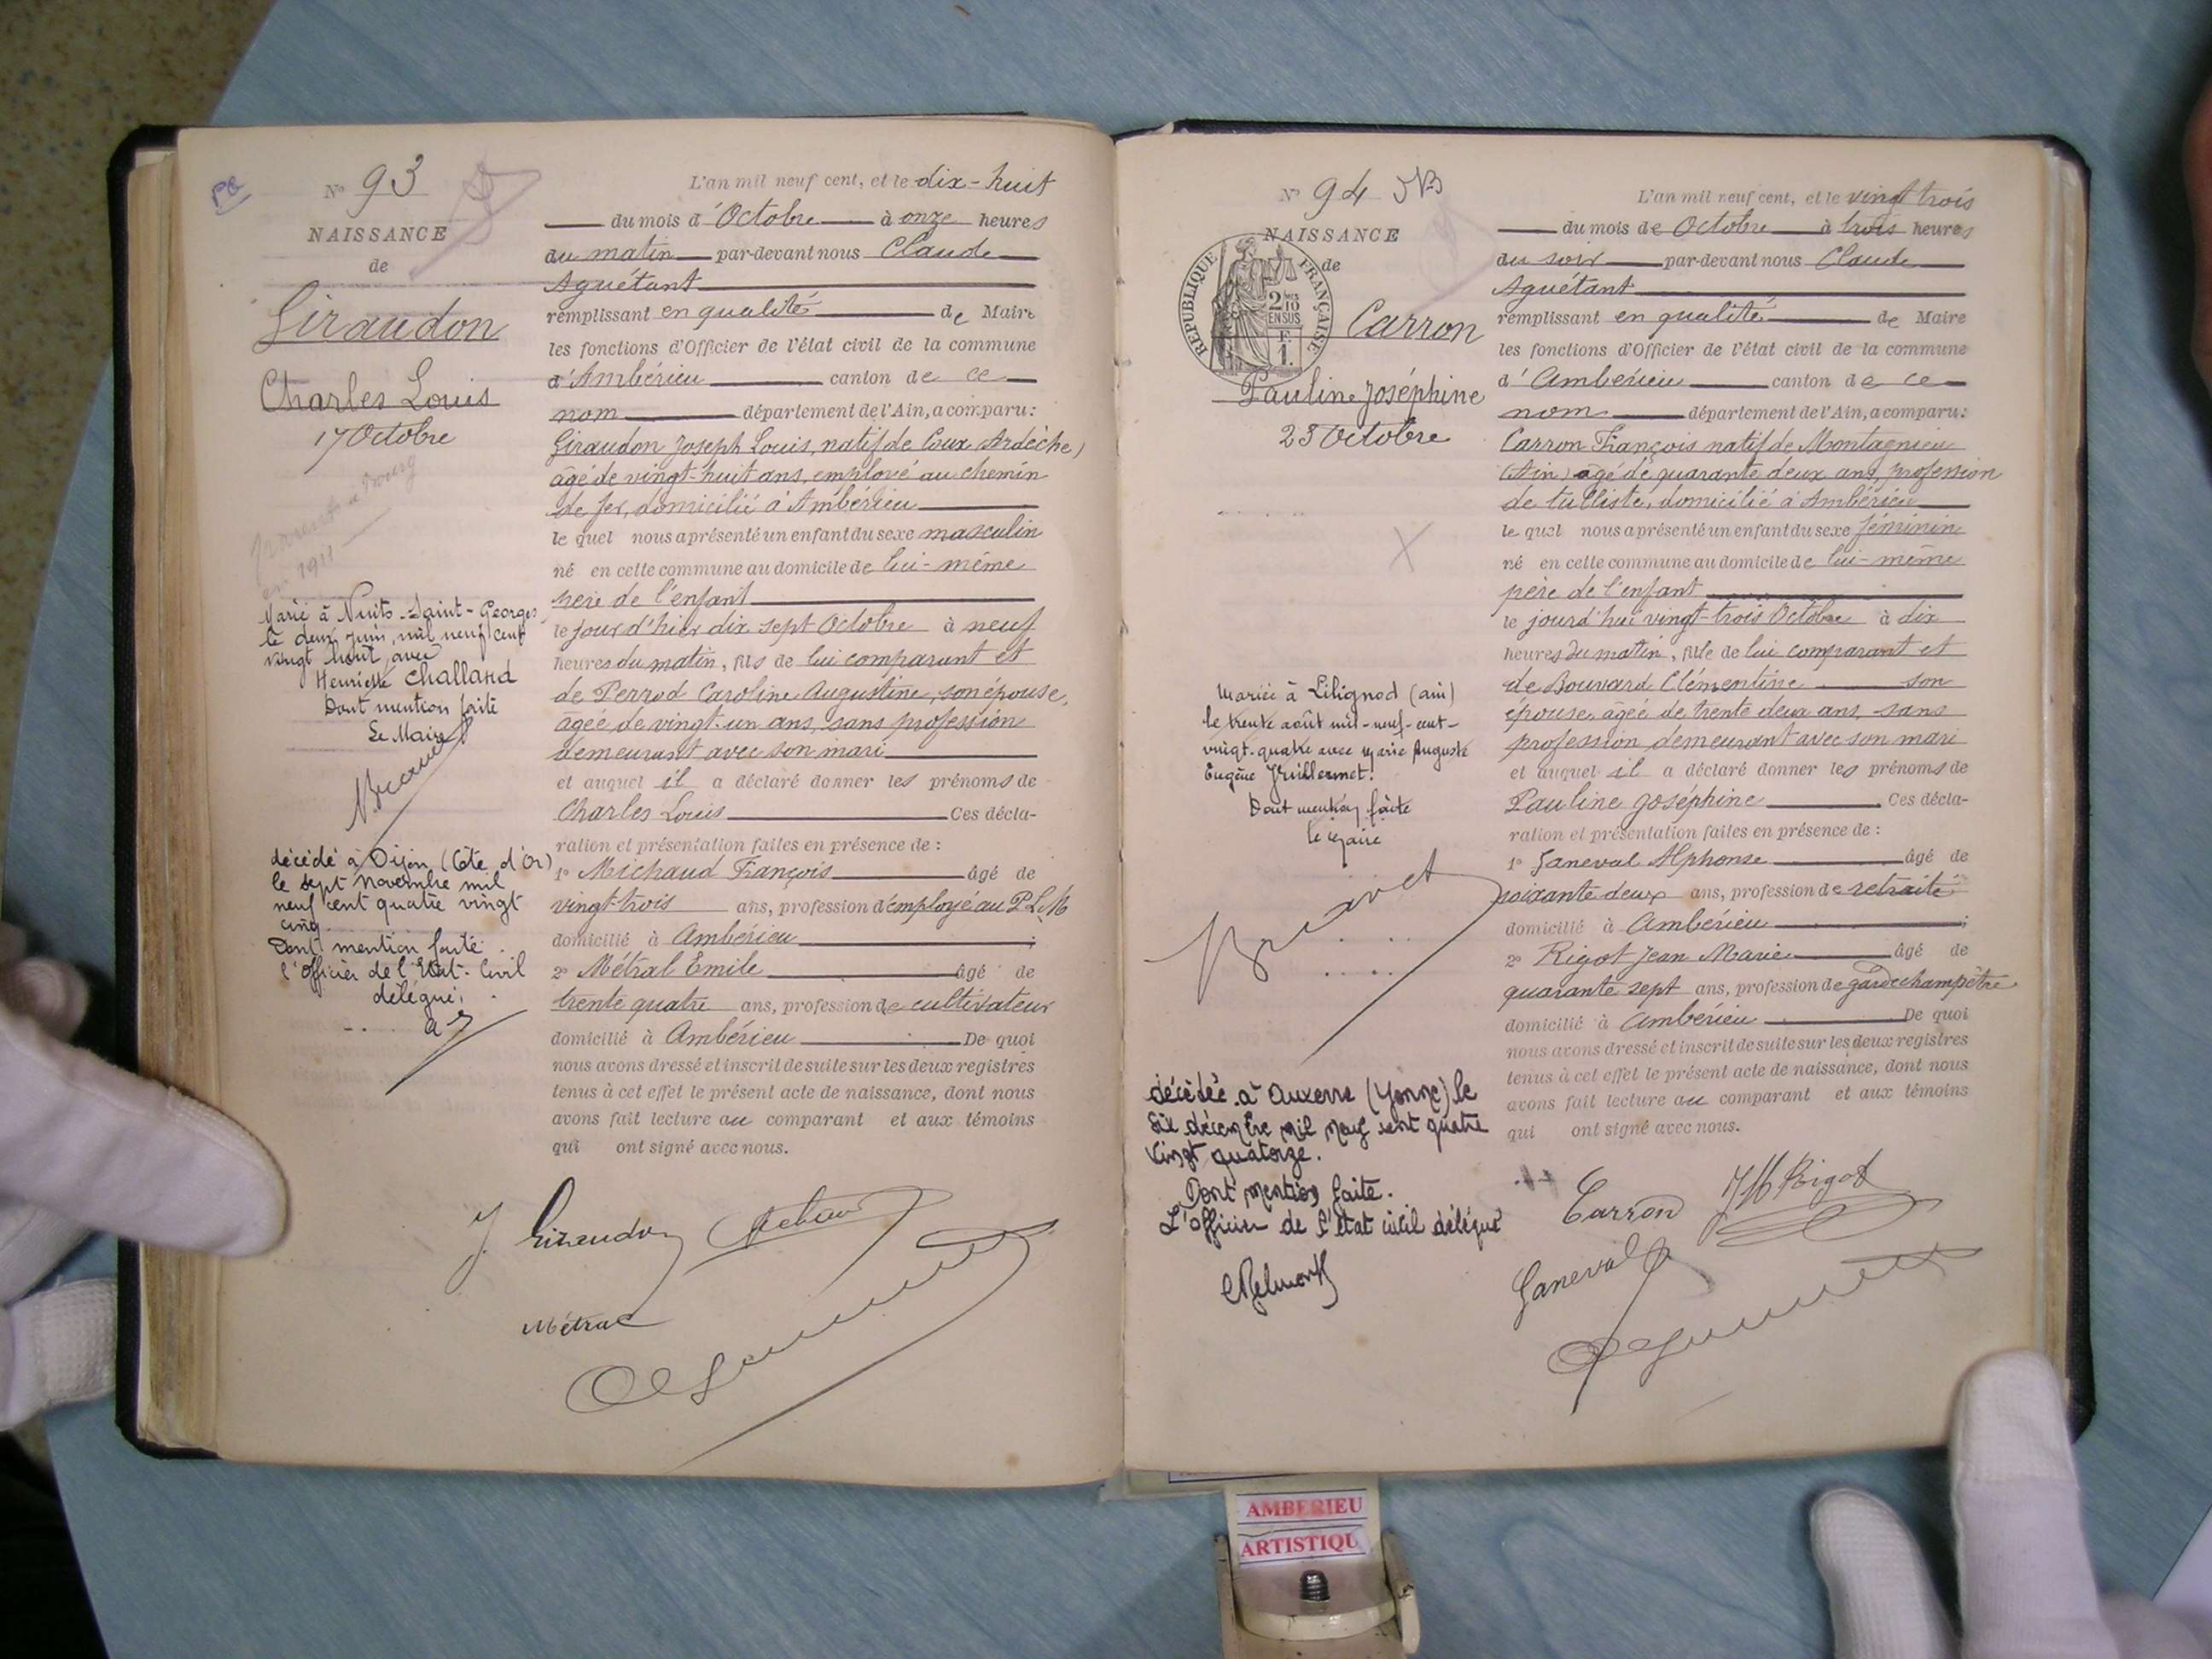 PB
N° 93
NAISSANCE
de
Giraudon
Charles Louis
17 Octobre
en 1911
Marié à Nuits-Saint-Georges
le deux juin, mil neuf cent
vingt huit, avec
Henriette Challand
Dont mention faite
Le Maire
décédé à Dijon (Côte d'Or)
le sept novembre mil
neuf cent quatre vingt
cinq.
Dont mention faite.
l'officier de l'Etat-Civil
délégué,
L'an mil neuf cent, et le dix-huit
du mois d'Octobre à onze heures
du matin par-devant nous Claude
Aguétant
remplissant en qualité de Maire
les fonctions d'Officier de l'état civil de la commune
d'Ambérieu canton de ce
nom département de l'Ain, a comparu:
Giraudon Joseph Louis, natif de Coux Ardèche)
âgé de vingt-huit ans, employé au chemin
de fer, domicilié à Ambérieu
le quel nous a présenté un enfant du sexe masculin
né en cette commune au domicile de lui-même
père de l'enfant
le jour d'hier dix sept Octobre à neuf
heures du matin, fils de lui comparant et
de Perrod Caroline Augustine, son épouse,
agée de vingt-un ans, sans profession
demeurant avec son mari
et auquel il a déclaré donner les prénoms de
Charles Louis Ces décla-
ration et présentation faites en présence de :
1° Michaud François âgé de
vingt-trois ans, profession d'employé au P.L.M
domicilié à Ambérieu ;
2° Métral Emile âgé de
trente quatre ans, profession de cultivateur
domicilié à Ambérieu De quoi
nous avons dressé et inscrit de suite sur les deux registres
tenus à cet effet le présent acte de naissance, dont nous
avons fait lecture au comparant et aux témoins
qui ont signé avec nous.
J. Giraudon
Métral
N° 94
NAISSANCE
de
RÉPUBLIQUE FRANÇAISE
2/10
EN SUS
F.
1.
Carron
Pauline Joséphine
23 Octobre
Mariée à Lilignod (ain)
le trente août mil-neuf-cent-
vingt-quatre avec Marie Auguste
Eugène Guillermet.
Dont mention faite
le Maire
décédée à Auxerre (Yonne) le
six décembre mil neuf cent quatre
vingt quatorze.
Dont mention faite.
L'officier de l'état civil délégué
L'an mil neuf cent, et le vingt trois
du mois de Octobre à trois heures
du soir par-devant nous Claude
Aguétant
remplissant en qualité de Maire
les fonctions d'Officier de l'état civil de la commune
d'Ambérieu canton de ce
nom département de l'Ain, a comparu:
Carron François natif de Montagnieu
(Ain) agé de quarante deux ans, profession
de tulliste, domicilié à Ambérieu
le quel nous a présenté un enfant du sexe féminin
né en cette commune au domicile de lui-même
père de l'enfant
le jourd'hui vingt-trois Octobre à dix
heures du matin, fille de lui comparant et
de Bouvard Clémentine son
épouse, âgée de trente deux ans, sans
profession demeurant avec son mari
et auquel il a déclaré donner les prénoms de
Pauline Joséphine Ces décla-
ration et présentation faites en présence de :
1° Janeval Alphonse âgé de
soixante deux ans, profession de retraité
domicilié à Ambérieu ;
2° Rigot Jean Marie âgé de
quarante sept ans, profession de garde champêtre
domicilié à Ambérieu De quoi
nous avons dressé et inscrit de suite sur les deux registres
tenus à cet effet le présent acte de naissance, dont nous
avons fait lecture au comparant et aux témoins
qui ont signé avec nous.
Carron JM Rigot
Janeval
AMBERIEU
ARTISTIQU